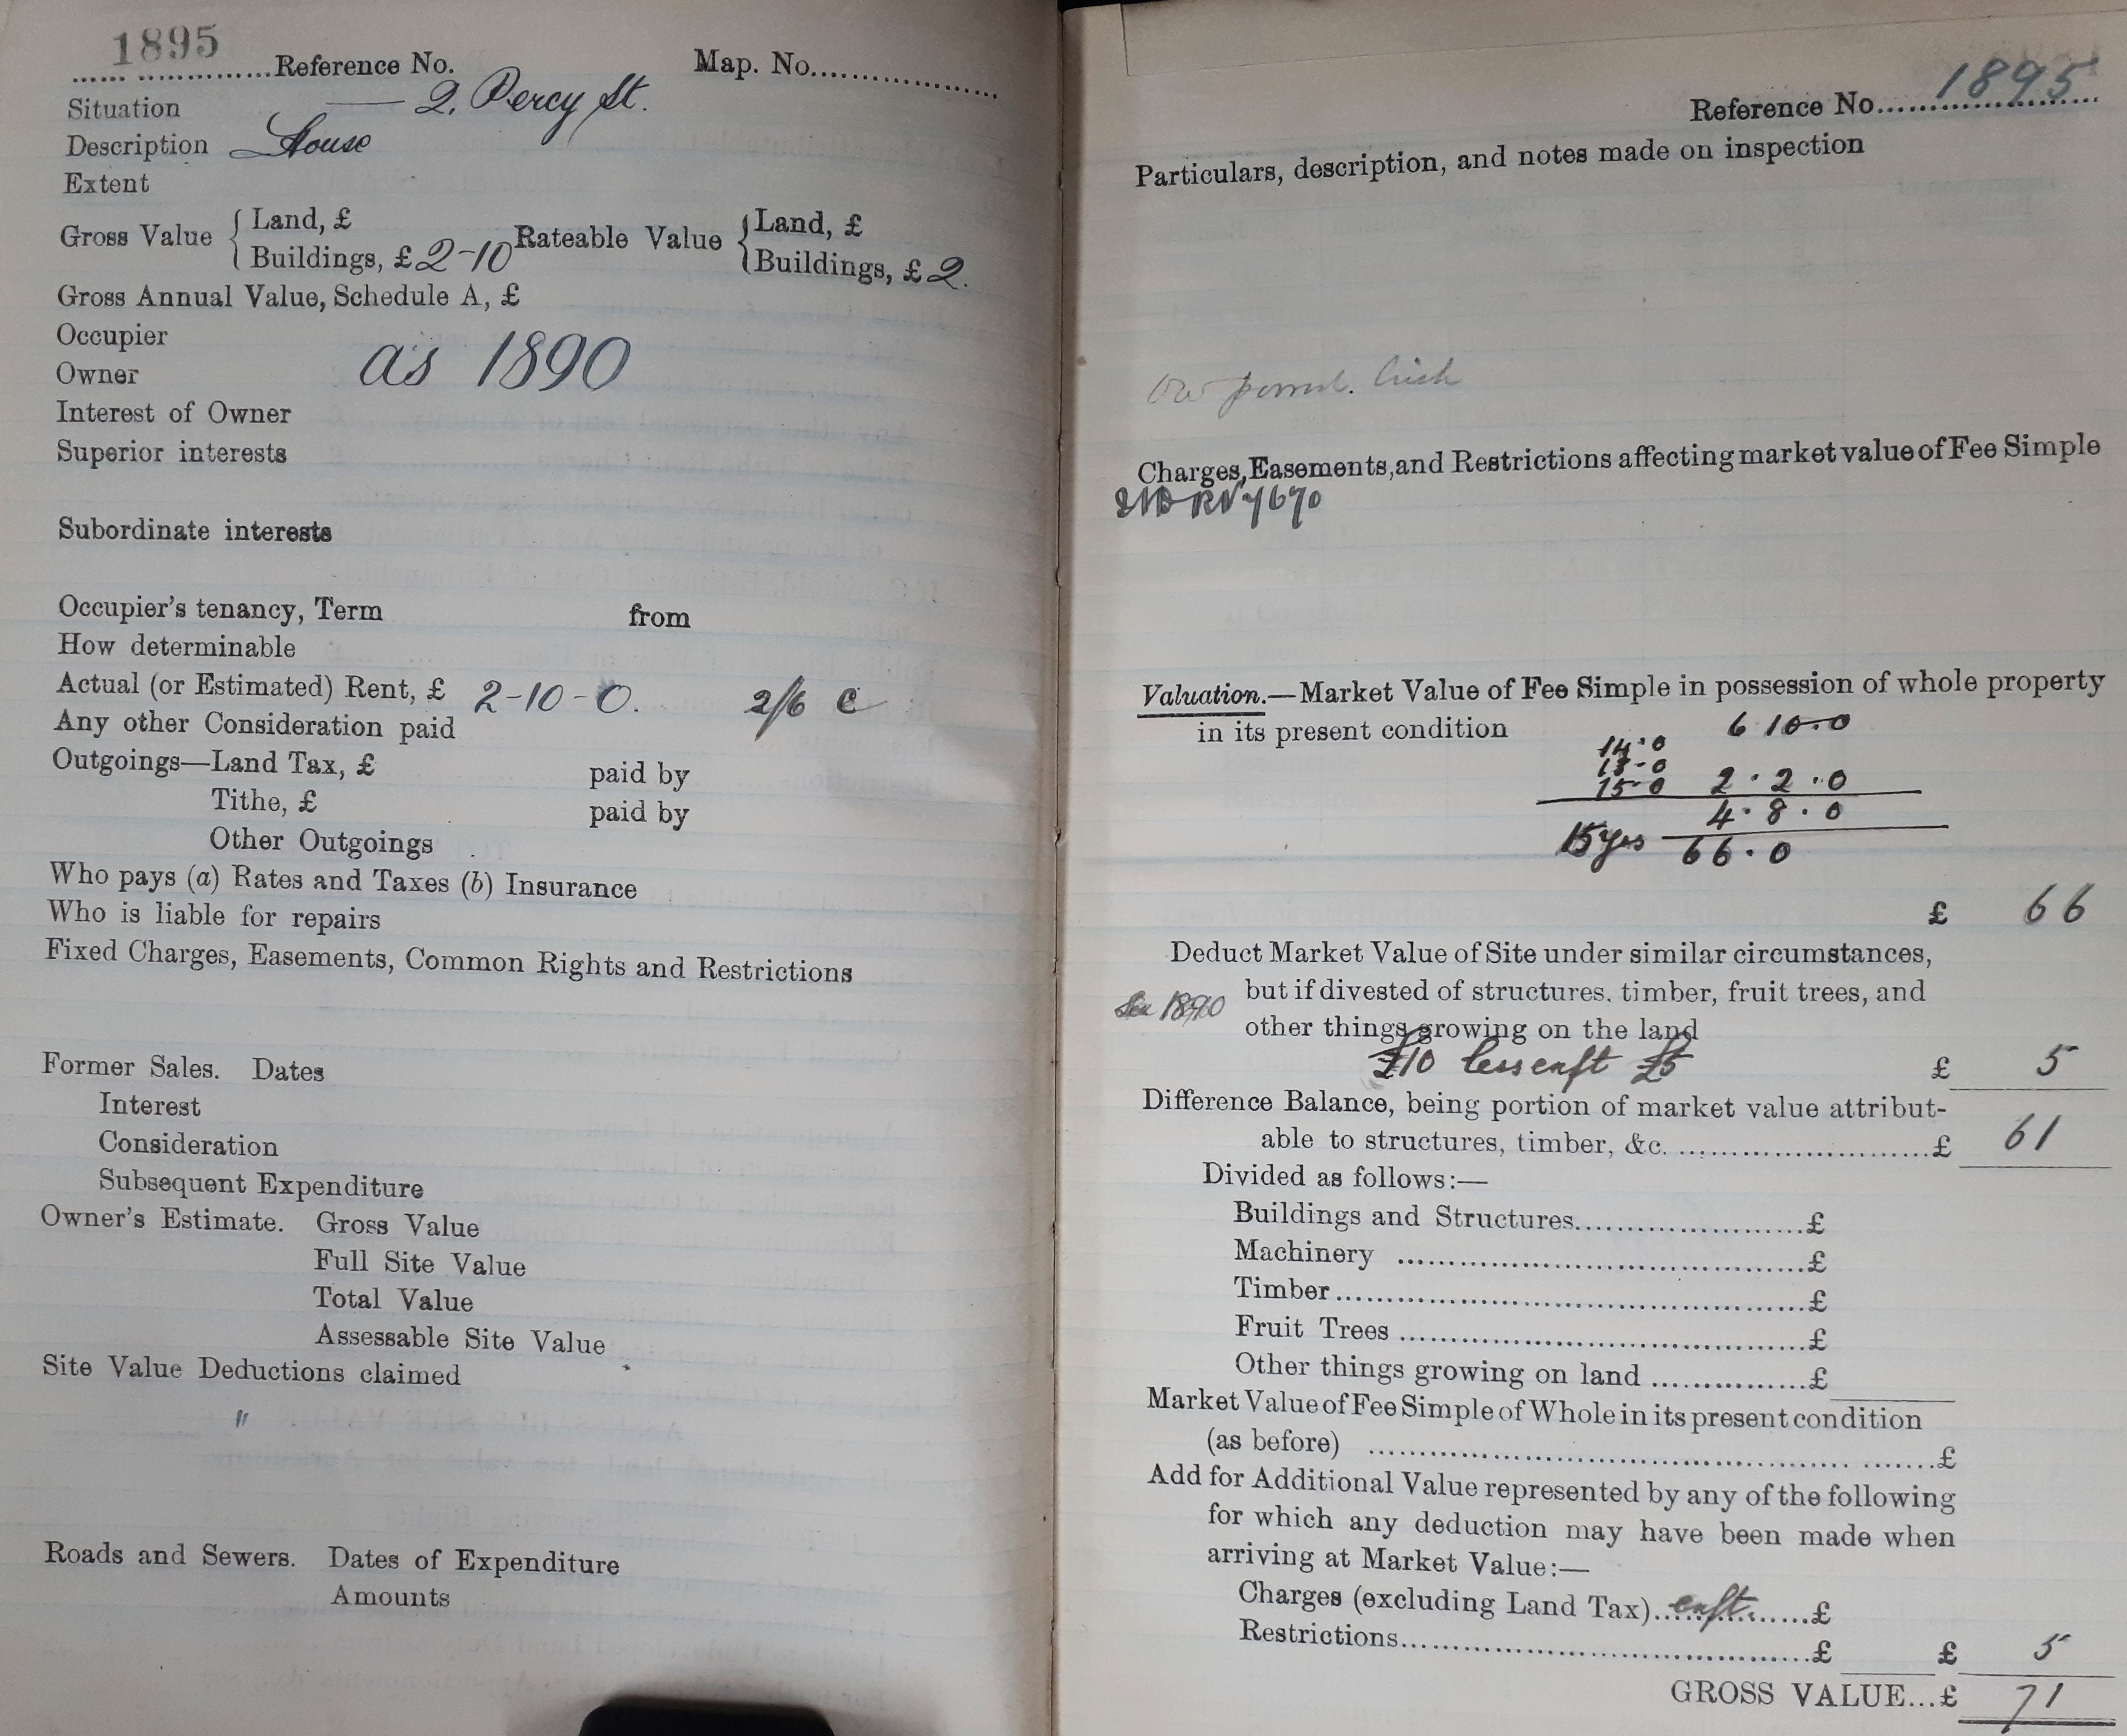 1895
Reference No. Map. No.
Situation — 2, Percy St.
Description House
Extent
Gross Value { Land, £ Rateable Value { Land, £
Buildings, £ 2-10 Buildings, £ 2.
Gross Annual Value, Schedule A, £
Occupier
as 1890
Owner
Interest of Owner
Superior interests
Subordinate interests
Occupier's tenancy, Term from
How determinable
Actual (or Estimated) Rent, £ 2-10-0. 2/6 C
Any other Consideration paid
Outgoings—Land Tax, £ paid by
Tithe, £ paid by
Other Outgoings
Who pays (a) Rates and Taxes (b) Insurance
Who is liable for repairs
Fixed Charges, Easements, Common Rights and Restrictions
Former Sales. Dates
Interest
Consideration
Subsequent Expenditure
Owner's Estimate. Gross Value
Full Site Value
Total Value
Assessable Site Value
Site Value Deductions claimed
"
Roads and Sewers. Dates of Expenditure
Amounts
Reference No. 1895
Particulars, description, and notes made on inspection
Charges, Easements, and Restrictions affecting market value of Fee Simple
Valuation.—Market Value of Fee Simple in possession of whole property
in its present condition 6 10-0
14.0
13-0
15-0 2.2.0
4.8.0
15 yrs 66.0
£ 66
Deduct Market Value of Site under similar circumstances,
but if divested of structures, timber, fruit trees, and
See 1890
other things growing on the land
£10 less enft £5 £ 5
Difference Balance, being portion of market value attribut-
able to structures, timber, &c. £ 61
Divided as follows:—
Buildings and Structures £
Machinery £
Timber £
Fruit Trees £
Other things growing on land £
Market Value of Fee Simple of Whole in its present condition
(as before) £
Add for Additional Value represented by any of the following
for which any deduction may have been made when
arriving at Market Value:—
Charges (excluding Land Tax) enft. £
Restrictions £ £ 5
GROSS VALUE...£ 71